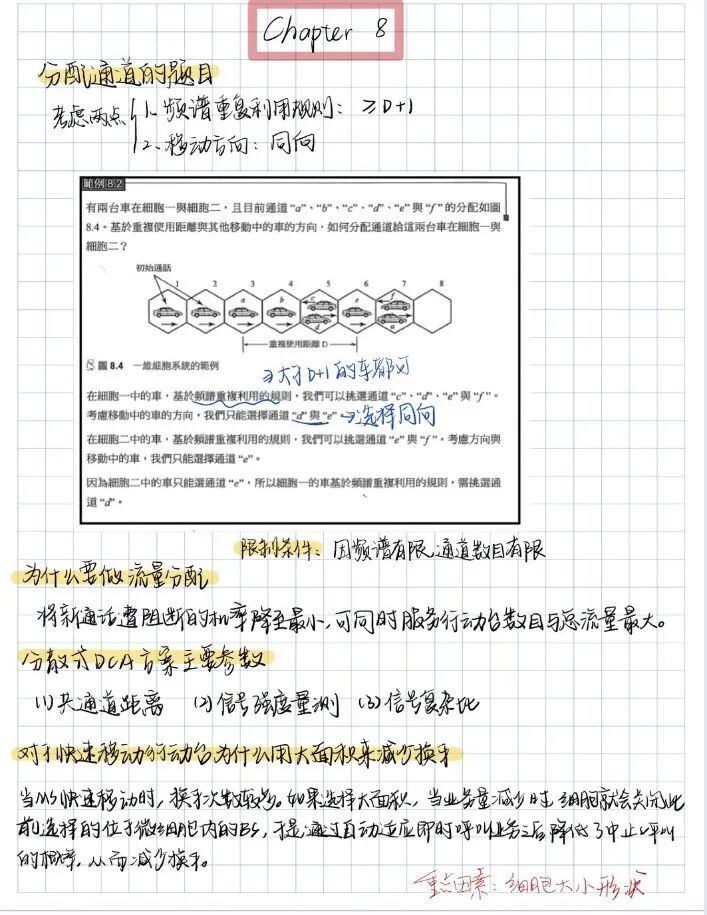 Chapter 8
分配通道的题目
考虑两点 1. 频谱重复利用规则: ≥D+1
2. 移动方向: 同向
範例 8.2
有兩台車在細胞一與細胞二，且目前通道 “a”、“b”、“c”、“d”、“e” 與 “f” 的分配如圖
8.4。基於重複使用距離與其他移動中的車的方向，如何分配通道給這兩台車在細胞一與
細胞二？
初始通話
1 2 3 4 5 6 7 8
a b c e f
d a
重複使用距離 D
圖 8.4 一維細胞系統的範例
大于D+1的车都可
在細胞一中的車，基於頻譜重複利用的規則，我們可以挑選通道 “c”、“d”、“e” 與 “f”。
考慮移動中的車的方向，我們只能選擇通道 “d” 與 “e”。 →选择同向
在細胞二中的車，基於頻譜重複利用的規則，我們可以挑選通道 “e” 與 “f”。考慮方向與
移動中的車，我們只能選擇通道 “e”。
因為細胞二中的車只能選通道 “e”，所以細胞一的車基於頻譜重複利用的規則，需挑選通
道 “d”。
限制条件: 因频谱有限,通道数目有限
为什么要做流量分配
将新通话遭阻断的机率降至最小,可同时服务行动台数目与总流量最大。
分散式DCA方案主要参数
(1)共通道距离 (2)信号强度量测 (3)信号复杂比
对于快速移动行动台为什么用大面积来减少换手
当MS快速移动时,换手次数较多。如果选择大面积,当业务量减少时,细胞就会关闭此
前选择的位于微细胞内的BS,于是,通过自动适应即时呼叫业务之后降低了中止呼叫
的概率,从而减少换手。
重点因素: 细胞大小形状